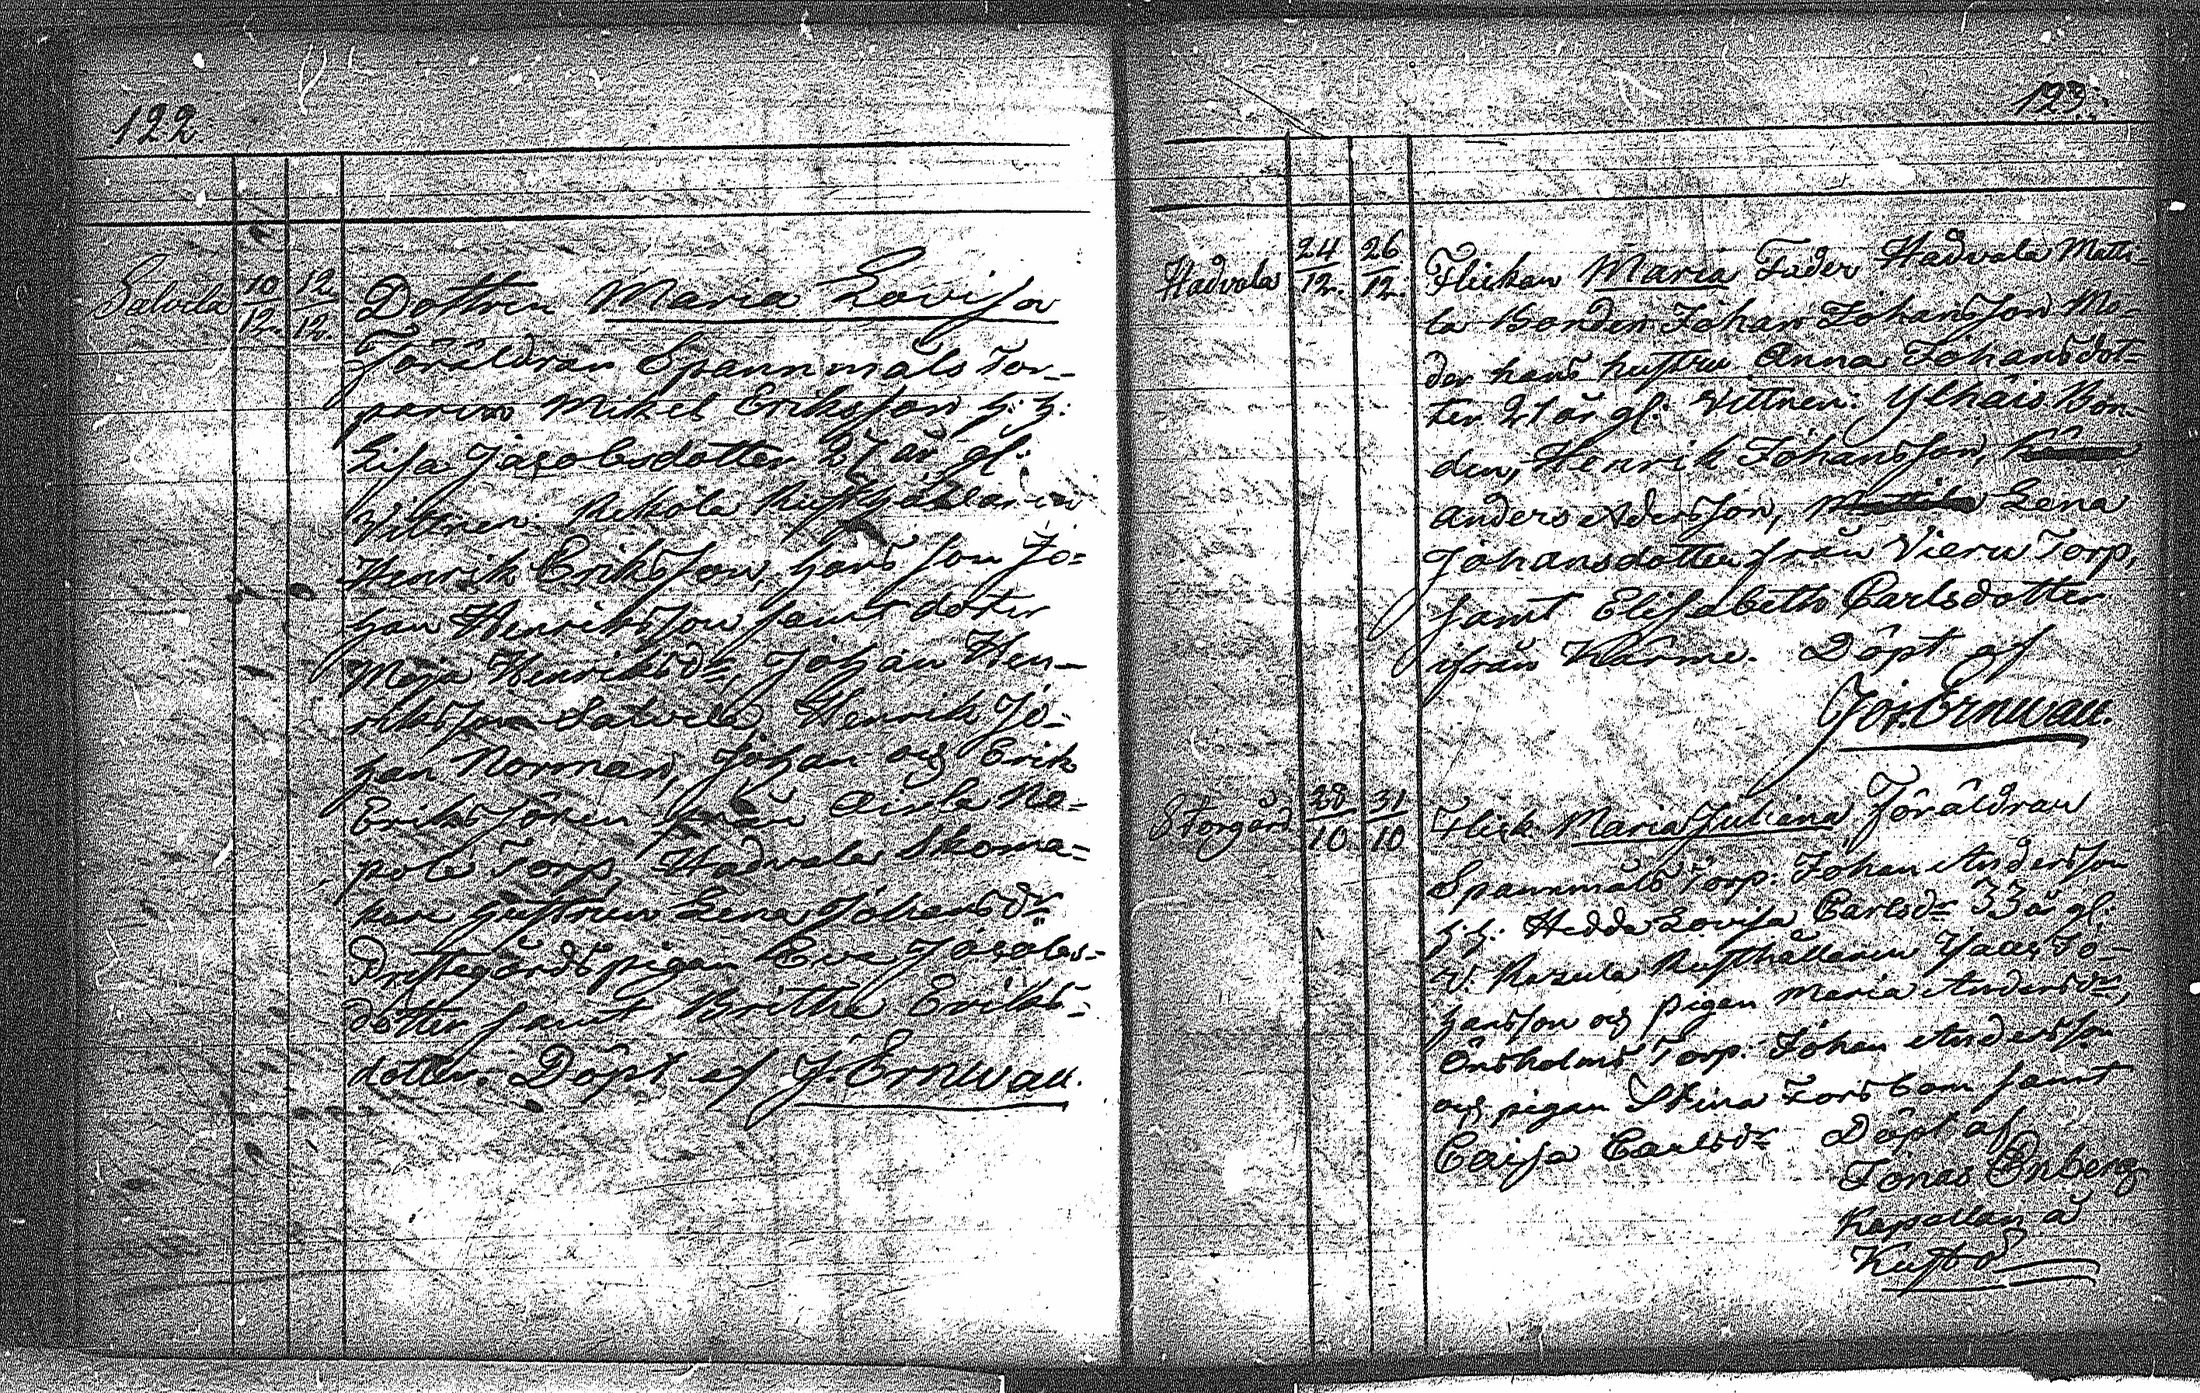 122
Salvela 10/12. 12/12. Dottren Maria Lovisa
Föräldrar Spannmåls Tor-
paren Mikel Eriksson h: h:
Lisa Jacobsdotter 27 år gl:
Vittnen: Nikola Rusthållaren
Henrik Eriksson, hans son Jo-
han Henriksson samt dotter
Maja Henriksdr, Johan Hen-
riksson Salvela, Henrik Jo-
han Norman, Johan och Erik
Erikssöner från
pola Torp, Hadvala Skoma-
kare hustrun Lena Johansdr
pigan Eva Jacobs-
dotter samt Britha Eriks-
dotter. Döpt af J. Ernwall.
123.
Hadvala 24/12. 26/12. Flickan Maria Fader Hadvala Matti-
la Bonden Johan Johansson Mo-
der hans hustru Anna Johansdot-
ter 21 år gl: Vittnen: Ylhäis Bon-
den, Henrik Johansson,
Anders Andersson, Lena
Johansdotter från Vieru Torp,
samt Elisabeth Carlsdotter
ifrån Karme. Döpt af
Jos. Ernwall.
Storgård 28/10 31/10 Flick. Maria Juliana Föräldrar
Spannmåls Torp. Johan Andersson
h: h: Hedda Lovisa Carlsdr 33 år gl:
V: Rusthållaren Isaac Jo-
hansson och pigan Maria Andersdr,
Örsholms Torp. Johan Andersson
och pigan Stina Forsbom samt
Caisa Carlsdr Döpt af
Jonas Enberg
Kapellan å
Kustö